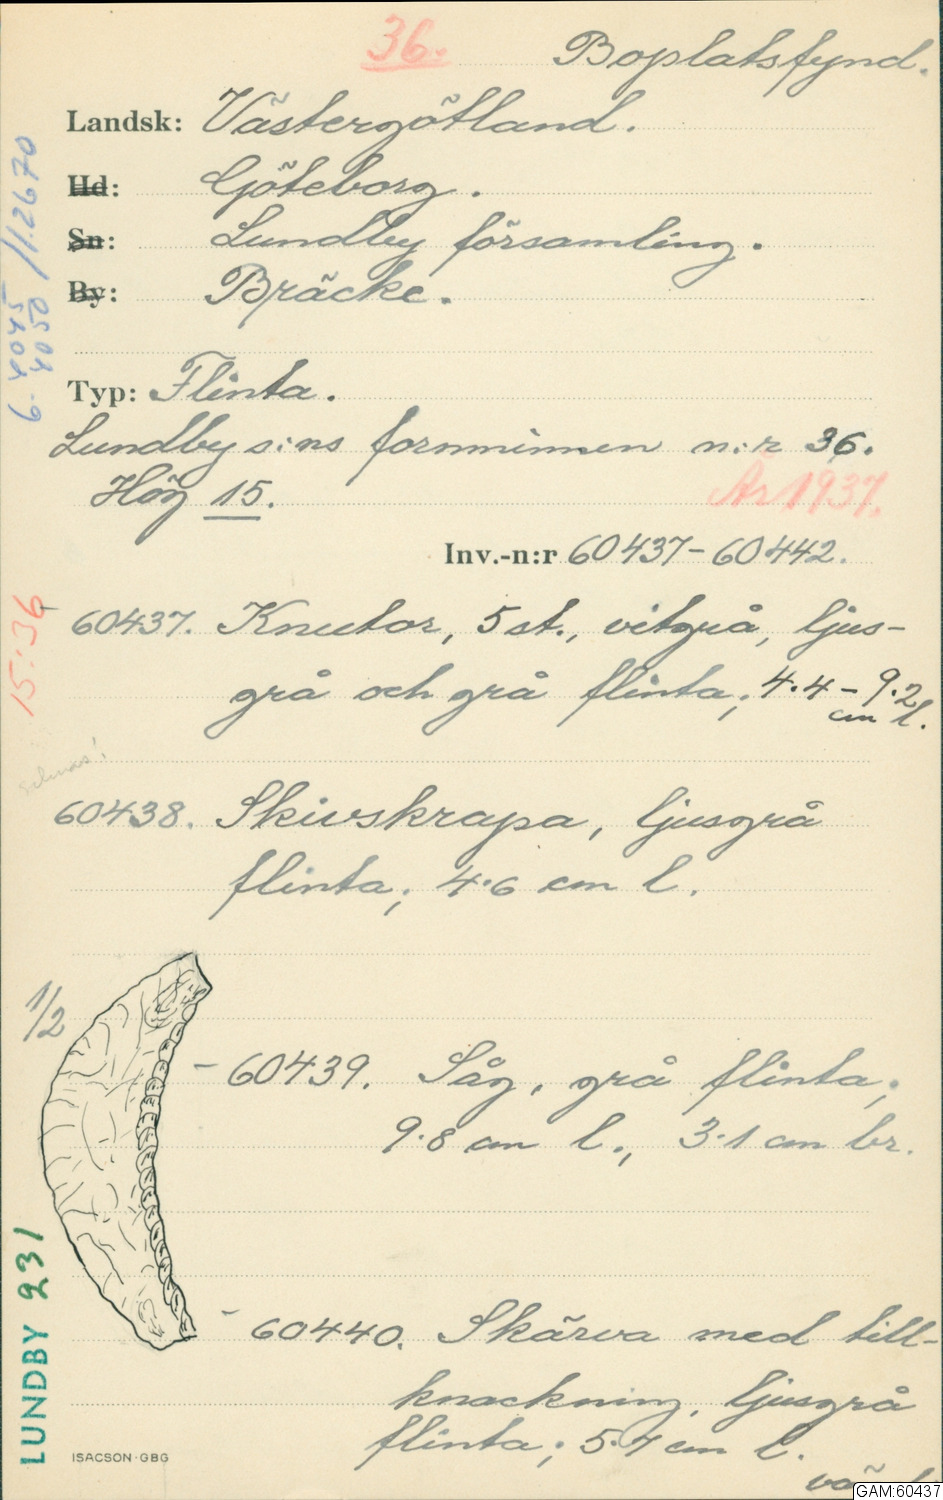 36.
Boplatsfynd.
Landsk: Västergötland.
Hd: Göteborg.
Sn: Lundby församling.
By: Bräcke.
Typ: Flinta.
Lundby s:ns fornminnen n:r 36.
Hög 15.
År 1937.
Inv.-n:r 60437-60442.
60437. Knutor, 5 st., vitgrå, ljus-
grå och grå flinta; 4.4 - 9.2
cm l.
60438. Skivskrapa, ljusgrå
flinta; 4.6 cm l.
1/2
- 60439. Såg, grå flinta;
9.8 cm l., 3.1 cm br.
- 60440. Skärva med till-
knackning, ljusgrå
flinta; 5.7 cm l.
15:36
LUNDBY 231
ISACSON·GBG
GAM:60437